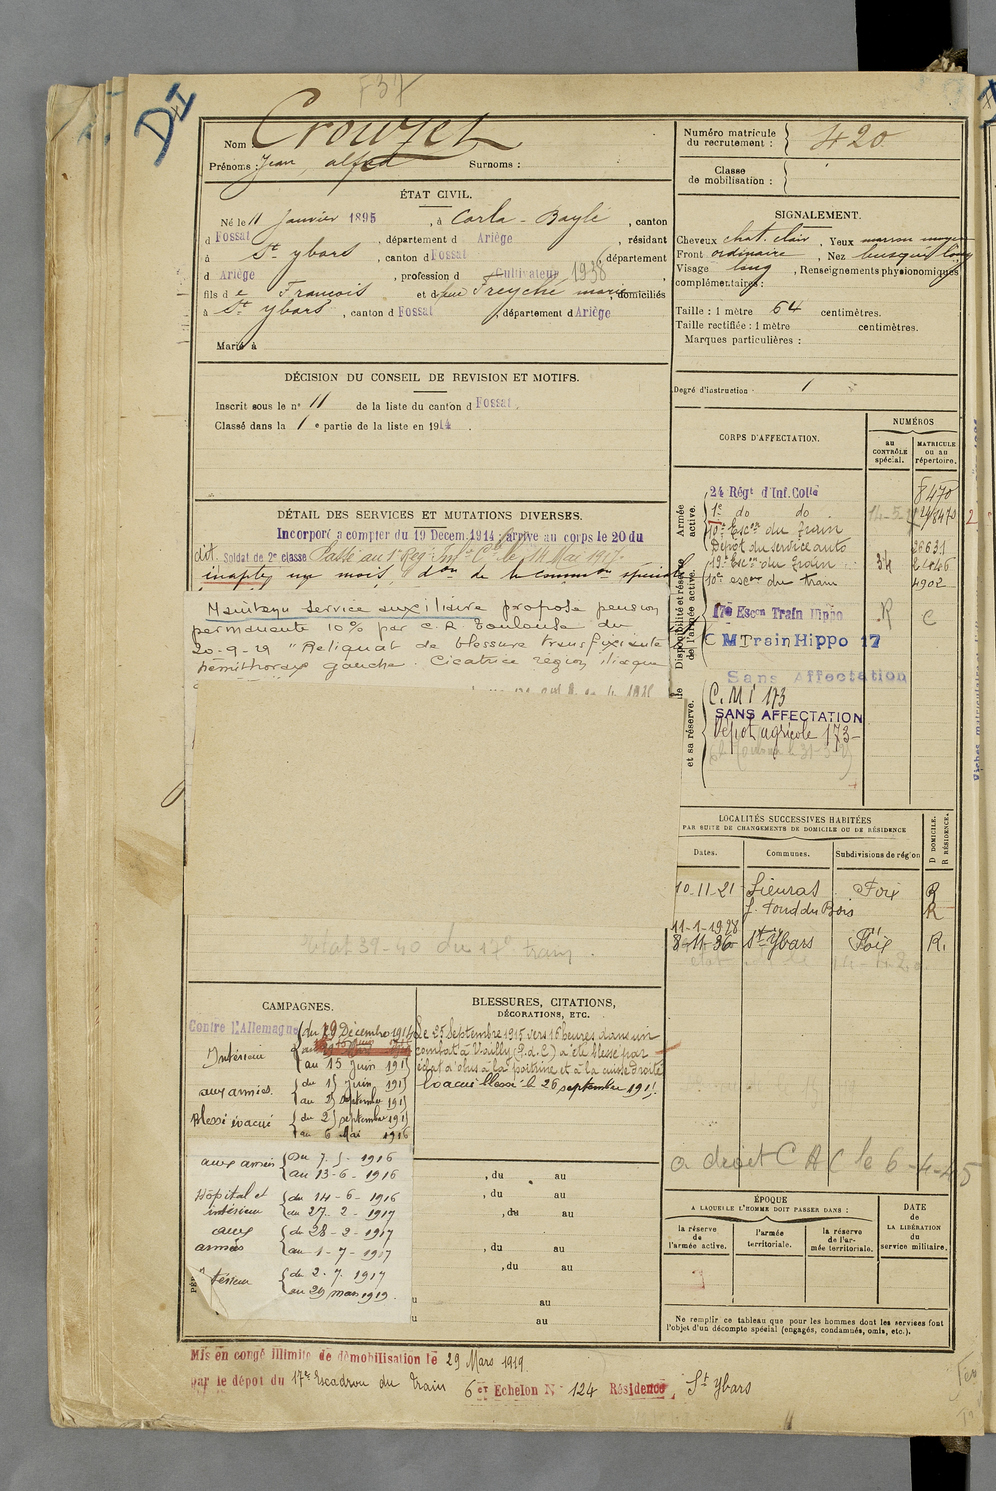 F 37
D4I
Nom : Crouzet
Prénoms : Jean, alfred Surnoms :
Numéro matricule du recrutement : 420
Classe de mobilisation :
ÉTAT CIVIL.
Né le 11 Janvier 1895, à Carla-Bayle, canton
d Fossat, département d Ariège, résidant
à St ybars, canton d Fossat, département
d Ariège, profession d Cultivateur 1938
fils de François et d feu Freyché marie, domiciliés
à St ybars, canton d Fossat, département d Ariège
Marié à
SIGNALEMENT.
Cheveux chat. clair, Yeux marron moyen
Front ordinaire, Nez busqué long
Visage long, Renseignements physionomiques
complémentaires :
Taille : 1 mètre 64 centimètres.
Taille rectifiée : 1 mètre centimètres.
Marques particulières :
Degré d'instruction 1
DÉCISION DU CONSEIL DE REVISION ET MOTIFS.
Inscrit sous le n° 11 de la liste du canton d Fossat.
Classé dans la 1e partie de la liste en 1914.
DÉTAIL DES SERVICES ET MUTATIONS DIVERSES.
Incorporé a compter du 19 Decem. 1914; arrive au corps le 20 du
dit. Soldat de 2e classe Passé au 1er Reg. Inf. Cle le 11 Mai 1917.
inapte un mois, don de la common spéciale
Maintenu service auxiliaire propose pension
permanente 10% par C.R. Toulouse du
20-9-29 "Reliquat de blessure transfixiante
hémithorax gauche. Cicatrice région iliaque
Etat 39-40 du 17e train.
CORPS D'AFFECTATION.
NUMÉROS
au CONTRÔLE spécial.
MATRICULE ou au répertoire.
Armée active.
24 Régt d'Inf. Colle 8470
1e do do
10e Escon du train
Dépôt du service auto 26631
19e Escon du Train 34
10e escon du train 4902
Disponibilité et réserve de l'armée active.
17e Escon Train Hippo R C
C M Train Hippo 17
Sans Affectation
et sa réserve.
C. M I 173
SANS AFFECTATION
Dépôt agricole 173
LOCALITÉS SUCCESSIVES HABITÉES
PAR SUITE DE CHANGEMENTS DE DOMICILE OU DE RÉSIDENCE
Dates. Communes. Subdivisions de région
D DOMICILE. R RÉSIDENCE.
10-11-21 Sieuras Foix R
f. Fond du Bois R
11-1-1928
8-11-36 St Ybars Foix R.
a droit C A C le 6-4-45
CAMPAGNES.
Contre l'Allemagne
du 19 Décembre 1914
Intérieur au 15 Juin 1915
aux armées. du 15 juin 1915
au 25 septembre 1915
Blessé évacué du 25 septembre 1915
au 6 Mai 1916
aux armées Du 7-5-1916
au 13-6-1916
Hôpital et intérieur du 14-6-1916
au 27-2-1917
aux armées du 28-2-1917
au 1-7-1917
Intérieur du 2-7-1917
au 29 mars 1919.
BLESSURES, CITATIONS,
DÉCORATIONS, ETC.
Le 25 Septembre 1915 vers 16 heures dans un
combat à Vailly (P.d.C) a été blessé par
éclat d'obus à la poitrine et à la cuisse droite
Evacué blessé le 26 septembre 1915.
, du au
, du au
, du au
, du au
, du au
au
au
ÉPOQUE
A LAQUELLE L'HOMME DOIT PASSER DANS :
la réserve de l'armée active.
l'armée territoriale.
la réserve de l'armée territoriale.
DATE de LA LIBÉRATION du service militaire.
Ne remplir ce tableau que pour les hommes dont les services font
l'objet d'un décompte spécial (engagés, condamnés, omis, etc.).
Mis en congé illimité de démobilisation le 29 Mars 1919.
par le dépôt du 17e Escadron du Train 6e Echelon N° 124 Résidence, St ybars